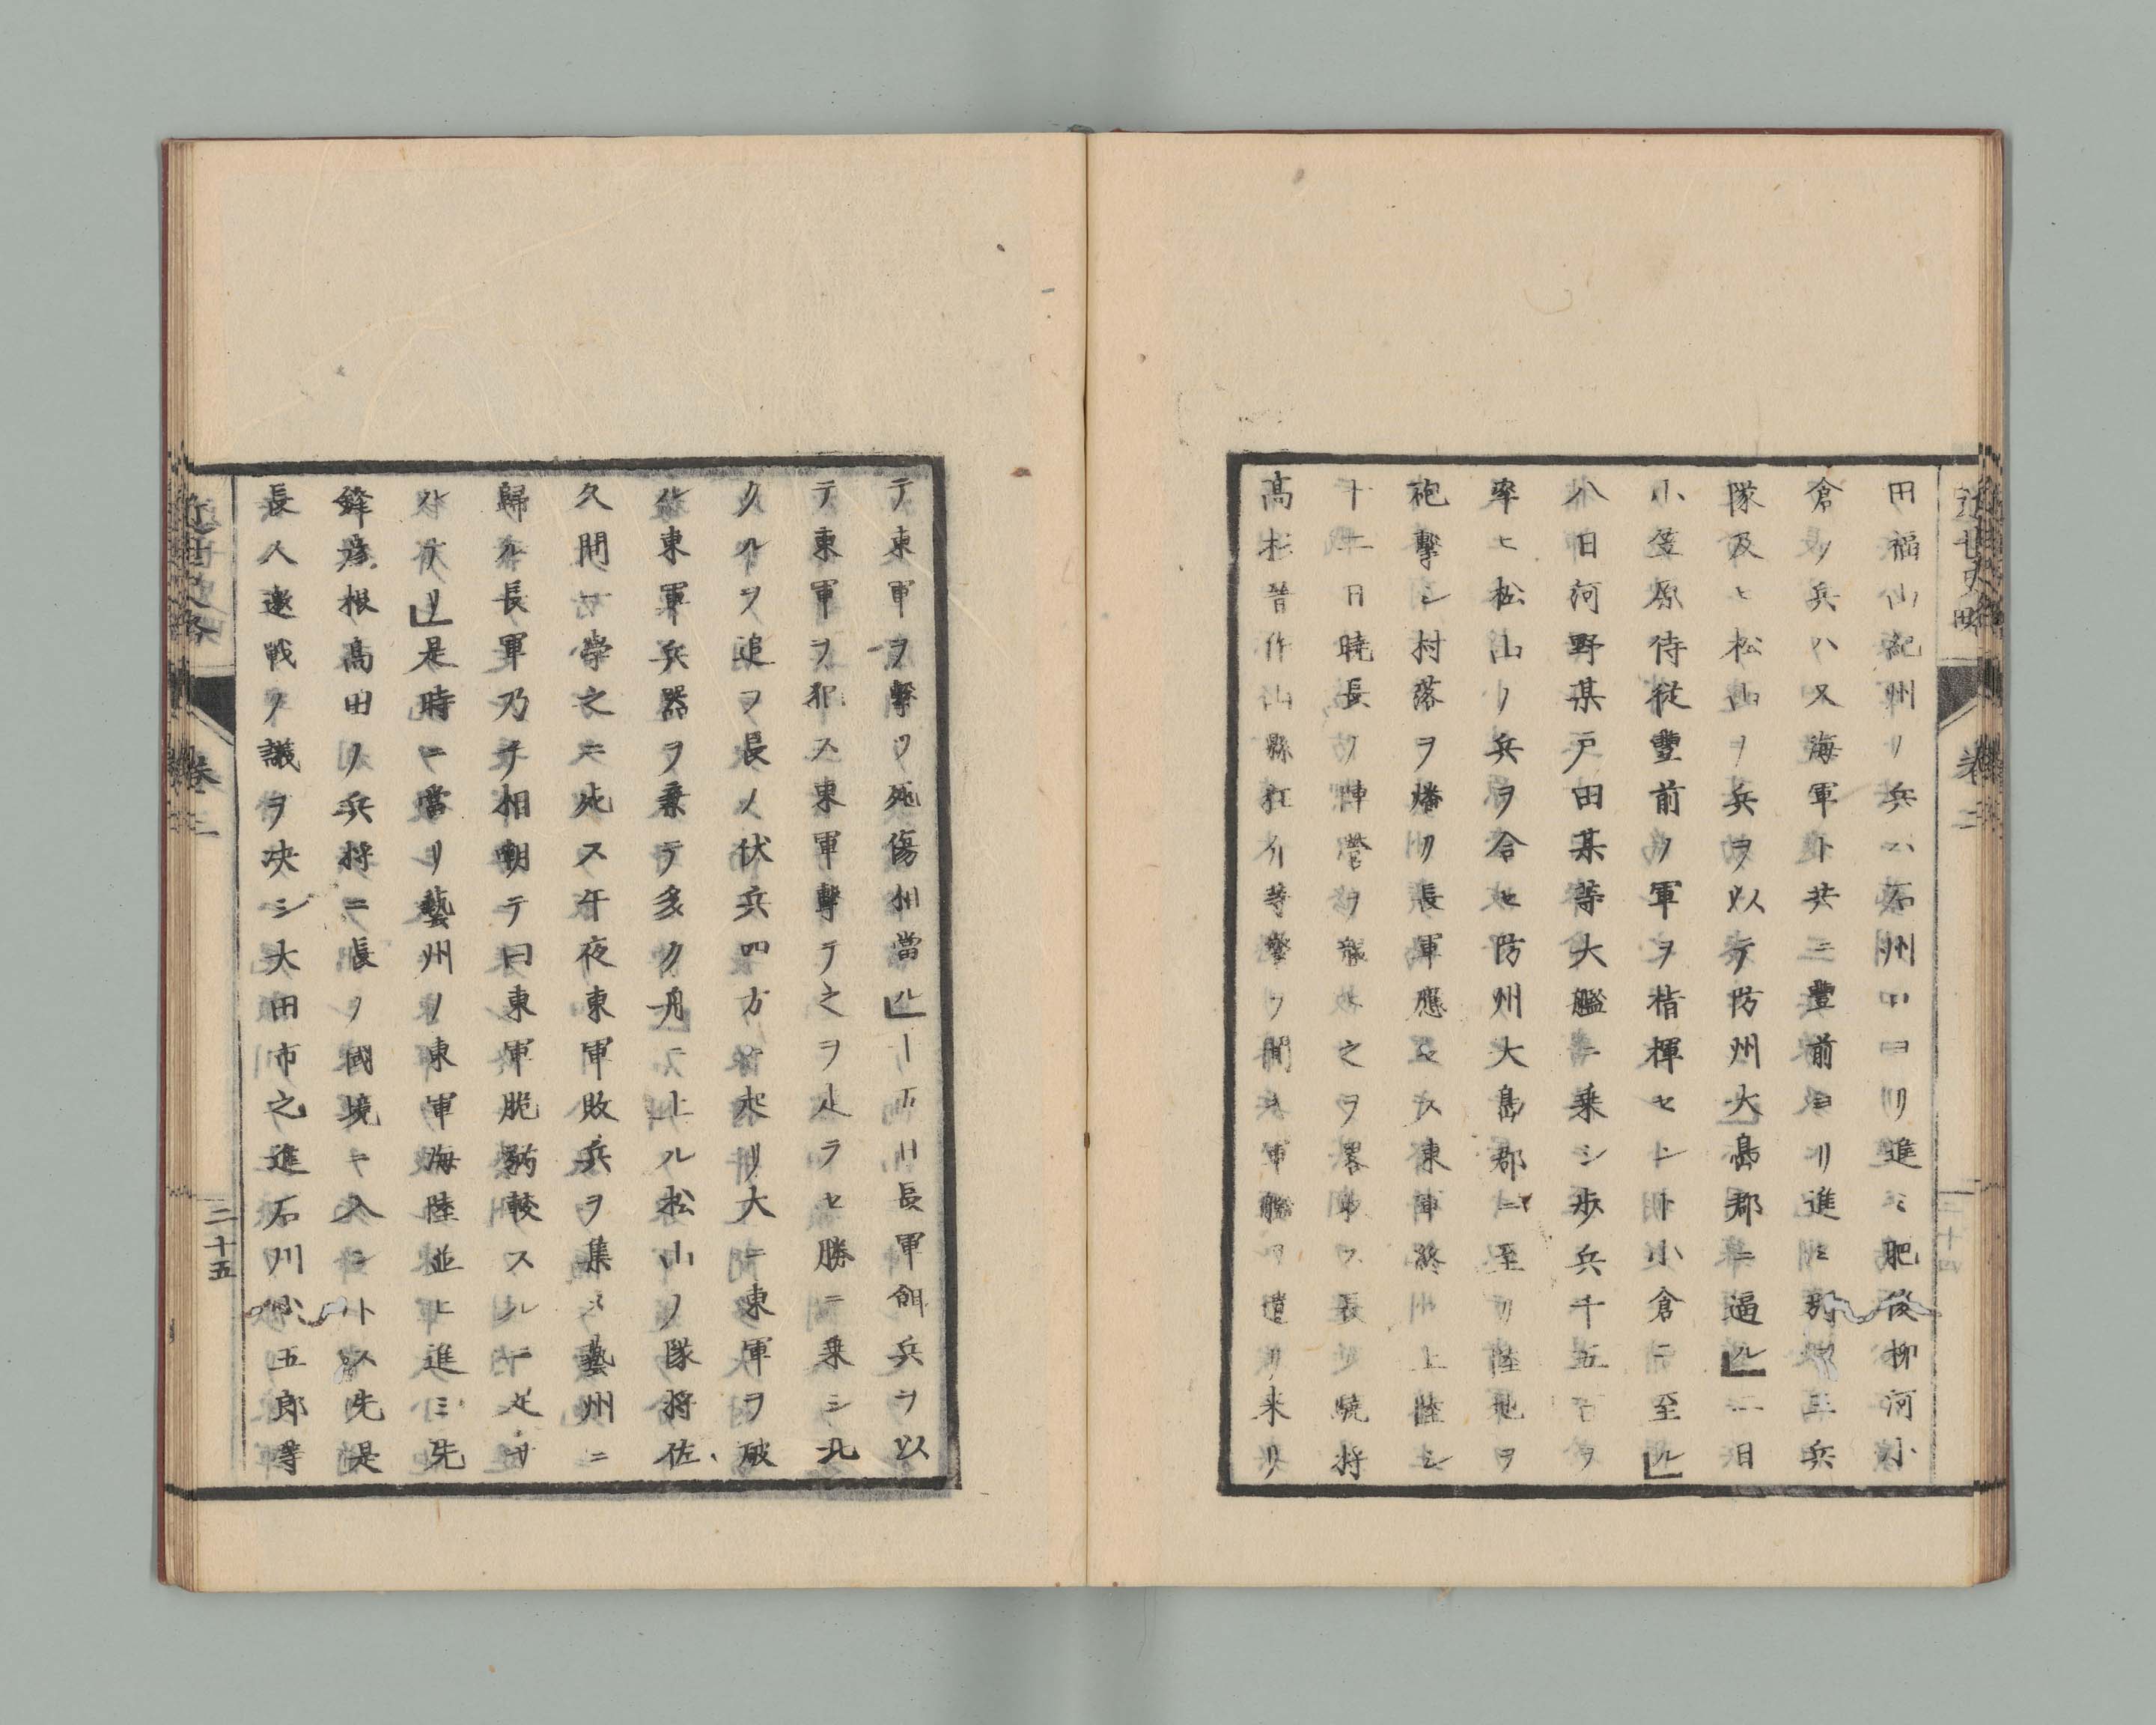 近世史略 卷三 三十四
田福山紀州ノ兵ハ石州口ヨリ進ミ肥後柳河小
倉ノ兵ハ又海軍ト共ニ豐前ヨリ進ミ別ニ三兵
隊及ヒ松山ノ兵ヲ以テ防州大島郡ニ逼ル二日
小笠原侍從豐前ノ軍ヲ楷揮セント小倉ニ至ル
八日河野某戸田某等大艦ニ乗シ歩兵千五百ヲ
率ヒ松山ノ兵ヲ合セ防州大島郡ニ至リ陸地ヲ
砲擊シ村落ヲ燔ク長軍應セス東軍終ニ上陸シ
十二日曉長ノ陣營ヲ襲ヒ之ヲ畧取ス長ノ驍將
高杉晋作山縣狂介等變ヲ聞キ軍艦ヲ遣リ来リ
テ東軍ヲ擊ツ死傷相當ル一五日長軍餌兵ヲ以
テ東軍ヲ犯ス東軍擊テ之ヲ走ラセ勝ニ乗シ北
クルヲ追ヲ長ノ伏兵四方ニ起リ大ニ東軍ヲ破
ル東軍兵器ヲ棄テ多ク舟ニ上ル松山ノ隊将佐
久間一學之ニ死ス午夜東軍敗兵ヲ集メ藝州ニ
歸ル長軍乃チ相嘲テ曰東軍脆弱較スルニ足ラ
サルナリ是時ニ當リ藝州ノ東軍海陸並ヒ進ミ先
鋒彦根高田ノ兵将ニ長ノ國境ニ入ントス先是
長人邀戰ノ議ヲ决シ大田市之進石川小五郎等
近世史略 卷三 三十五